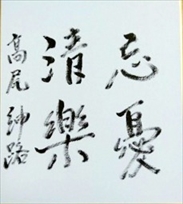 忘憂
清樂
高尾紳路